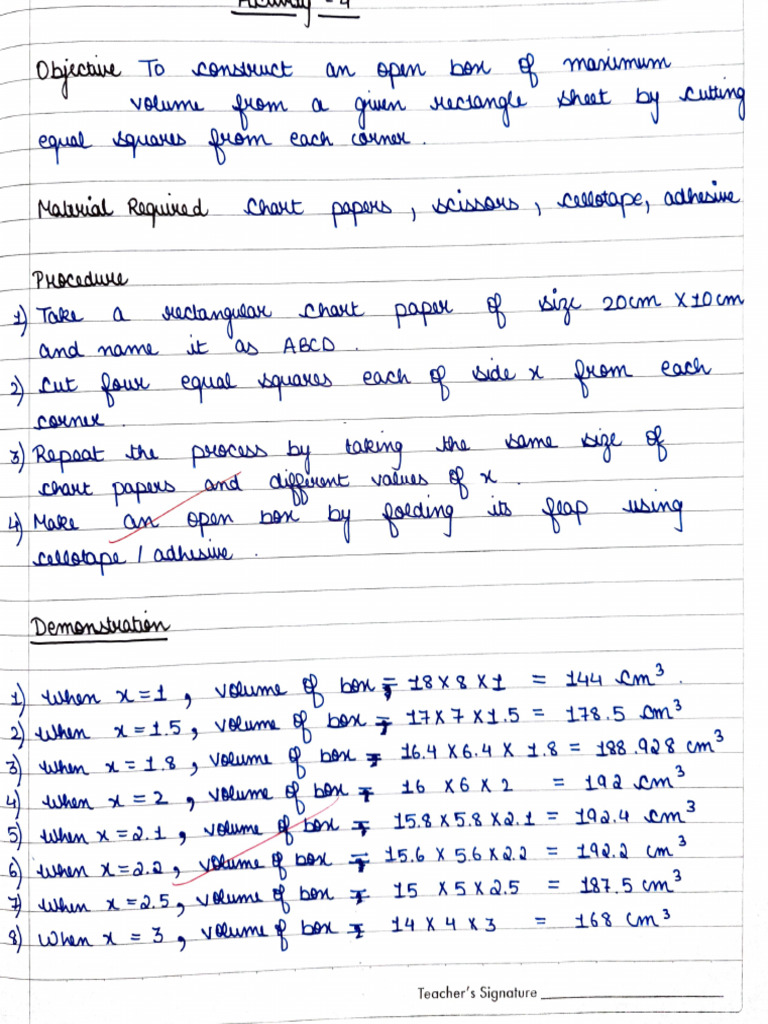 Activity - 4
Objective To construct an open box of maximum
volume from a given rectangle sheet by cutting
equal squares from each corner.
Material Required Chart papers, scissors, cellotape, adhesive
Procedure
1) Take a rectangular chart paper of size 20cm X 10cm
and name it as ABCD.
2) Cut four equal squares each of side x from each
corner.
3) Repeat the process by taking the same size of
chart papers and different values of x.
4) Make an open box by folding its flap using
cellotape / adhesive.
Demonstration
1) When x = 1, volume of box = 18 X 8 X 1 = 144 cm³.
2) When x = 1.5, volume of box = 17 X 7 X 1.5 = 178.5 cm³
3) When x = 1.8, volume of box = 16.4 X 6.4 X 1.8 = 188.928 cm³
4) When x = 2, volume of box = 16 X 6 X 2 = 192 cm³
5) When x = 2.1, volume of box = 15.8 X 5.8 X 2.1 = 192.4 cm³
6) When x = 2.2, volume of box = 15.6 X 5.6 X 2.2 = 192.2 cm³
7) When x = 2.5, volume of box = 15 X 5 X 2.5 = 187.5 cm³
8) When x = 3, volume of box = 14 X 4 X 3 = 168 cm³
Teacher's Signature